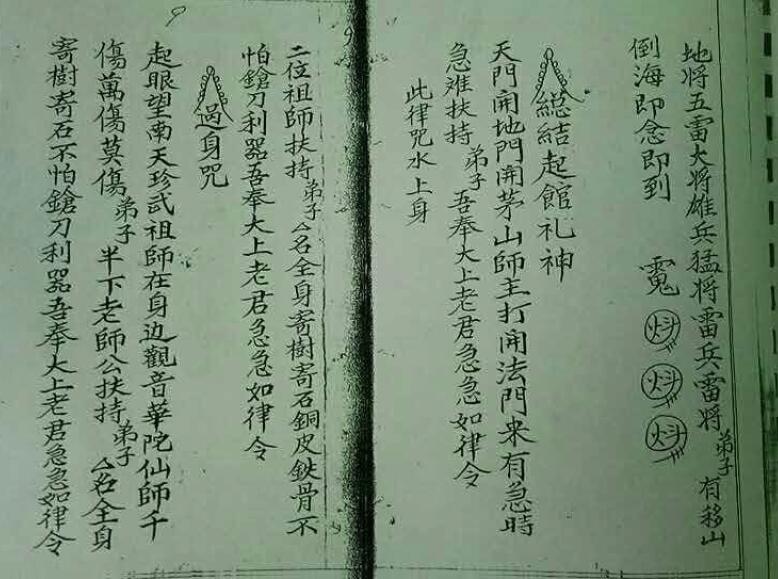 地将五雷大将雄兵猛将雷兵雷将弟子有移山
倒海即念即到
総結起館礼神
天門開地門開茅山師主打開法門来有急時
急难扶持弟子吾奉大上老君急急如律令
此律咒水上身
9
二位祖師扶持弟子厶名全身寄樹寄石銅皮鉄骨不
怕鎗刀利器吾奉大上老君急急如律令
過身咒
起眼望南天珍武祖師在身边觀音華陀仙師千
傷萬傷莫傷弟子半下老師公扶持弟子厶名全身
寄樹寄石不怕鎗刀利器吾奉大上老君急急如律令